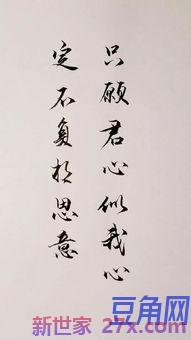 只愿君心似我心
定不负相思意
豆角网
新世家 27x.com